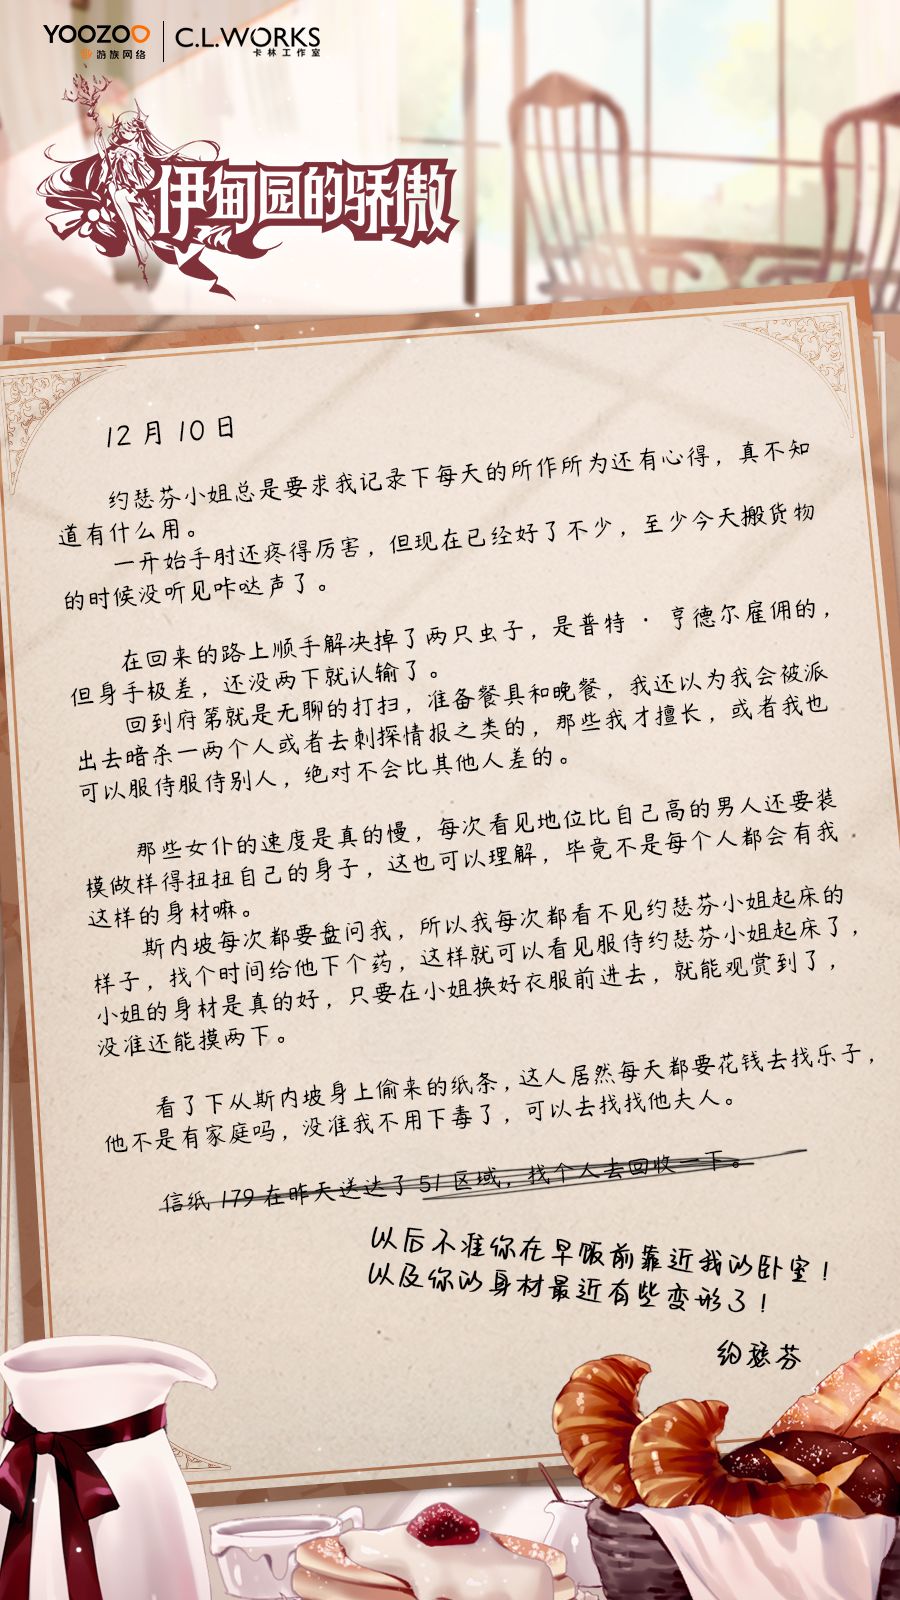 YOOZOO
游族网络
C.L.WORKS
卡林工作室
伊甸园的骄傲
12月10日
约瑟芬小姐总是要求我记录下每天的所作所为还有心得，真不知
道有什么用。
一开始手肘还疼得厉害，但现在已经好了不少，至少今天搬货物
的时候没听见咔哒声了。
在回来的路上顺手解决掉了两只虫子，是普特·亨德尔雇佣的，
但身手极差，还没两下就认输了。
回到府第就是无聊的打扫，准备餐具和晚餐，我还以为我会被派
出去暗杀一两个人或者去刺探情报之类的，那些我才擅长，或者我也
可以服侍服侍别人，绝对不会比其他人差的。
那些女仆的速度是真的慢，每次看见地位比自己高的男人还要装
模做样得扭扭自己的身子，这也可以理解，毕竟不是每个人都会有我
这样的身材嘛。
斯内坡每次都要盘问我，所以我每次都看不见约瑟芬小姐起床的
样子，找个时间给他下个药，这样就可以看见服侍约瑟芬小姐起床了，
小姐的身材是真的好，只要在小姐换好衣服前进去，就能观赏到了，
没准还能摸两下。
看了下从斯内坡身上偷来的纸条，这人居然每天都要花钱去找乐子，
他不是有家庭吗，没准我不用下毒了，可以去找找他夫人。
信纸179在昨天送达了51区域，找个人去回收一下。
以后不准你在早饭前靠近我的卧室！
以及你的身材最近有些变形了！
约瑟芬